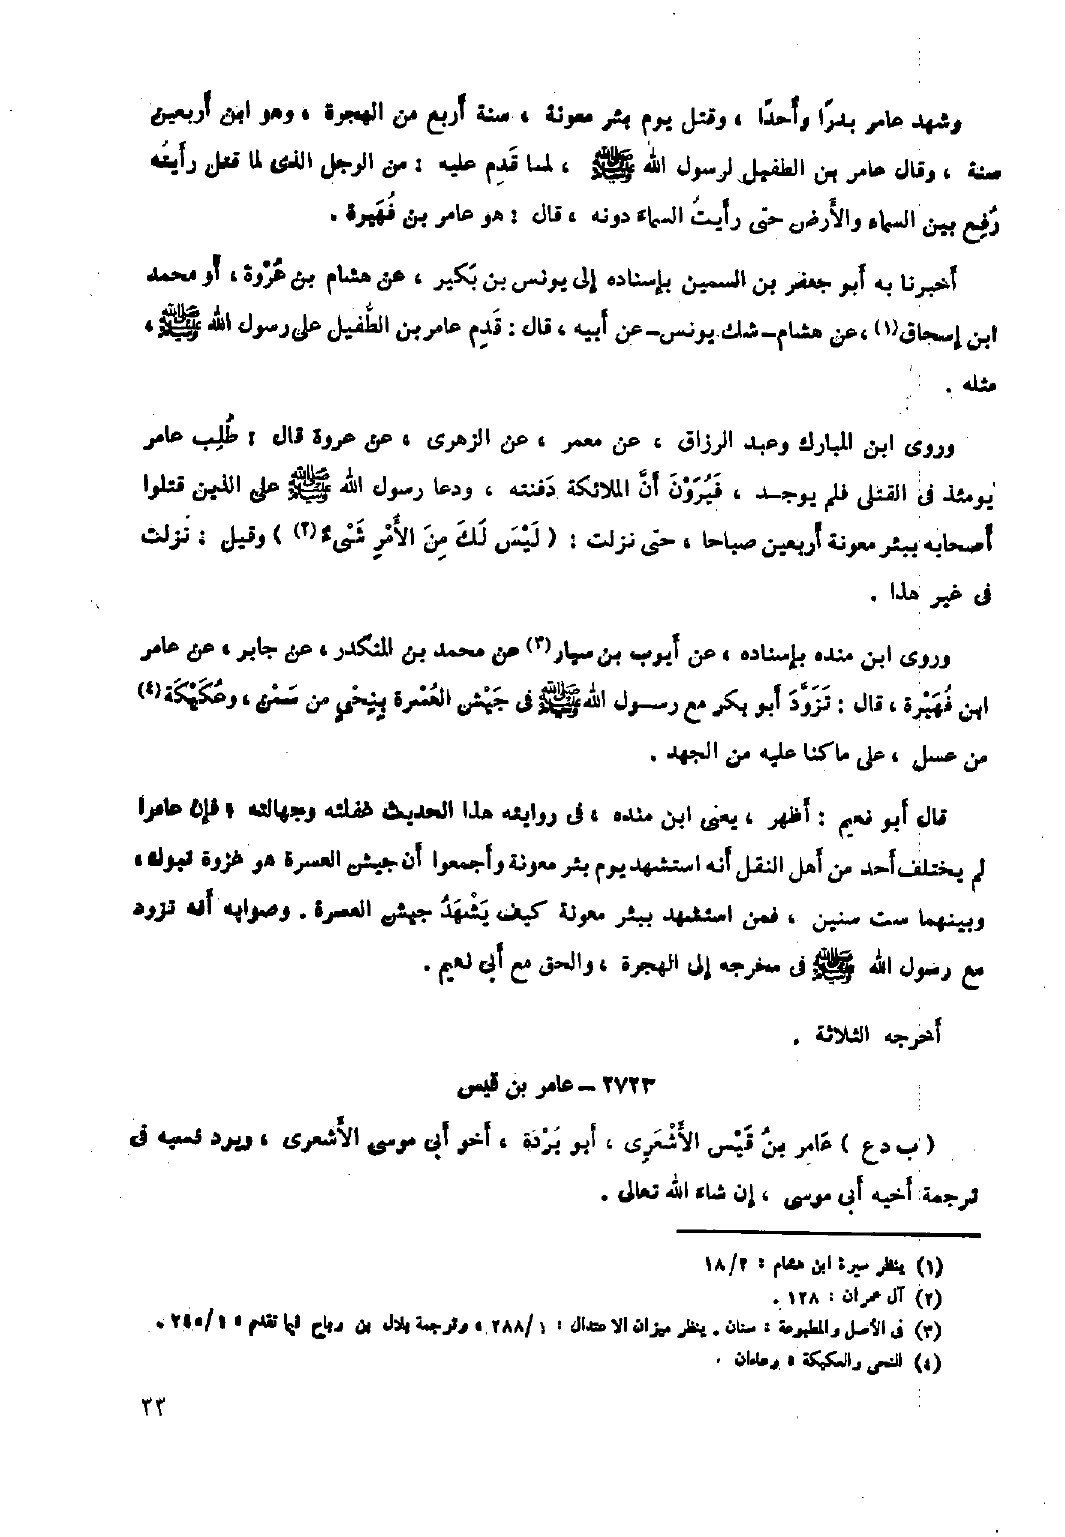 وشهد عامر بدرًا وأُحدًا ، وقتل يوم بئر معونة ، سنة أربع من الهجرة ، وهو ابن أربعين
سنة ، وقال عامر بن الطفيل لرسول الله ﷺ ، لما قَدِم عليه : من الرجل الذى لما قتل رأيتُه
رُفِع بين السماء والأرض حتى رأيتُ السماء دونه ، قال : هو عامر بن فُهَيرة .
أخبرنا به أبو جعفر بن السمين بإسناده إلى يونس بن بَكير ، عن هشام بن عُرْوة ، أو محمد
ابن إسحاق(١) ، عن هشام – شك يونس – عن أبيه ، قال : قَدِم عامر بن الطُّفيل على رسول الله ﷺ ،
مثله .
وروى ابن المبارك وعبد الرزاق ، عن معمر ، عن الزهرى ، عن عروة قال : طُلِب عامر
يومئذ فى القتلى فلم يوجد ، فَيُرَوْنَ أَنَّ الملائكة دَفنته ، ودعا رسول الله ﷺ على الذين قتلوا
أصحابه ببئر معونة أربعين صباحا ، حتى نزلت : ( لَيْسَ لَكَ مِنَ الأَمْرِ شَىْءٌ(٢) ) وقيل : نزلت
فى غير هذا .
وروى ابن منده بإسناده ، عن أيوب بن سيار(٣) عن محمد بن المنكدر ، عن جابر ، عن عامر
ابن فُهَيْرة ، قال : تَزَوَّدَ أبو بكر مع رسول الله ﷺ فى جَيْش العُسْرة بِنِحْىٍ من سَمْن ، وعُكَيْكَة(٤)
من عسل ، على ما كنا عليه من الجهد .
قال أبو نعيم : أظهر ، يعنى ابن منده ، فى روايته هذا الحديث غفلته وجهالته ، فإن عامرا
لم يختلف أحد من أهل النقل أنه استشهد يوم بئر معونة وأجمعوا أن جيش العسرة هو غزوة تبوك ،
وبينهما ست سنين ، فمن استشهد ببئر معونة كيف يَشْهَدُ جيش العسرة . وصوابه أنه تزود
مع رسول الله ﷺ فى مخرجه إلى الهجرة ، والحق مع أبى نعيم .
أخرجه الثلاثة .
٢٧٢٣ – عامر بن قيس
( ب د ع ) عَامِر بنُ قَيْس الأَشْعَرِى ، أبو بُرْدَة ، أخو أبى موسى الأشعرى ، ويرد نسبه فى
ترجمة أخيه أبى موسى ، إن شاء الله تعالى .
(١) ينظر سيرة ابن هشام : ٢/١٨
(٢) آل عمران : ١٢٨ .
(٣) فى الأصل والمطبوعة : سنان . ينظر ميزان الاعتدال : ١/٢٨٨ ، وترجمة بلال بن رباح فيما تقدم : ١/٢٤٥ .
(٤) النحى والعكيكة : وعاءان .
٣٣